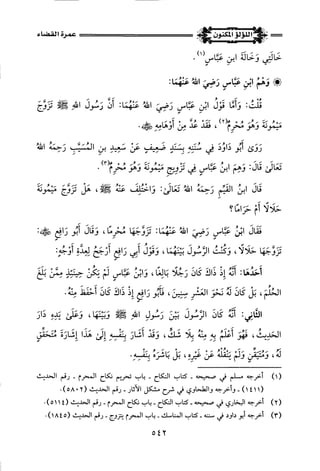 عمرة القضاء
اللؤلؤ المكنون
خَالَتِي وَخَالَةُ ابنِ عَبَّاسٍ(١).
وَهَمُ ابنِ عَبَّاسٍ رَضِيَ اللهُ عَنْهُمَا:
قُلْتُ: وَأَمَّا قَوْلُ ابْنِ عَبَّاسٍ رَضِيَ اللهُ عَنْهُمَا: أَنَّ رَسُولَ اللهِ ﷺ تَزَوَّجَ
مَيْمُونَةَ وَهُوَ مُحْرِمٌ(٢)، فَقَدْ عُدَّ مِنْ أَوْهَامِهِ ﷺ.
رَوَى أَبُو دَاوُدَ فِي سُنَنِهِ بِسَنَدٍ ضَعِيفٍ عَنْ سَعِيدِ بنِ المُسَيَّبِ رَحِمَهُ اللهُ
تَعَالَى قَالَ: وَهِمَ ابنُ عَبَّاسٍ فِي تَزْوِيجِ مَيْمُونَةَ وَهُوَ مُحْرِمٌ(٣).
قَالَ ابنُ القَيِّمِ رَحِمَهُ اللهُ تَعَالَى: وَاخْتُلِفَ عَنْهُ ﷺ، هَلْ تَزَوَّجَ مَيْمُونَةَ
حَلَالًا أَمْ حَرَامًا؟
فَقَالَ ابنُ عَبَّاسٍ رَضِيَ اللهُ عَنْهُمَا: تَزَوَّجَهَا مُحْرِمًا، وَقَالَ أَبُو رَافِعٍ ﷺ:
تَزَوَّجَهَا حَلَالًا، وَكُنْتُ الرَّسُولَ بَيْنَهُمَا، وَقَوْلُ أَبِي رَافِعٍ أَرْجَحُ لِعِدَّةِ أَوْجُهٍ:
أَحَدُهَا: أَنَّهُ إِذْ ذَاكَ كَانَ رَجُلًا بَالِغًا، وَابْنُ عَبَّاسٍ لَمْ يَكُنْ حِينَئِذٍ مِمَّنْ بَلَغَ
الحُلُمَ، بَلْ كَانَ لَهُ نَحْوَ العَشْرِ سِنِينَ، فَأَبُو رَافِعٍ إِذْ ذَاكَ كَانَ أَحْفَظَ مِنْهُ.
الثَّانِي: أَنَّهُ كَانَ الرَّسُولَ بَيْنَ رَسُولِ اللهِ ﷺ وَبَيْنَهَا، وَعَلَى يَدِهِ دَارَ
الحَدِيثُ، فَهُوَ أَعْلَمُ بِهِ مِنْهُ بِلَا شَكٍّ، وَقَدْ أَشَارَ بِنَفْسِهِ إِلَى هَذَا إِشَارَةَ مُتَحَقِّقٍ
لَهُ، وَمُتَيَقِّنٍ وَلَمْ يَنْقُلْهُ عَنْ غَيْرِهِ، بَلْ بَاشَرَهُ بِنَفْسِهِ.
(١) أخرجه مسلم في صحيحه - كتاب النكاح - باب تحريم نكاح المحرم - رقم الحديث
(١٤١١) - وأخرجه والطحاوي في شرح مشكل الآثار - رقم الحديث (٥٨٠٢).
(٢) أخرجه البخاري في صحيحه - كتاب النكاح - باب نكاح المحرم - رقم الحديث (٥١١٤).
(٣) أخرجه أبو داود في سننه - كتاب المناسك - باب المحرم يتزوج - رقم الحديث (١٨٤٥).
٥٤٢